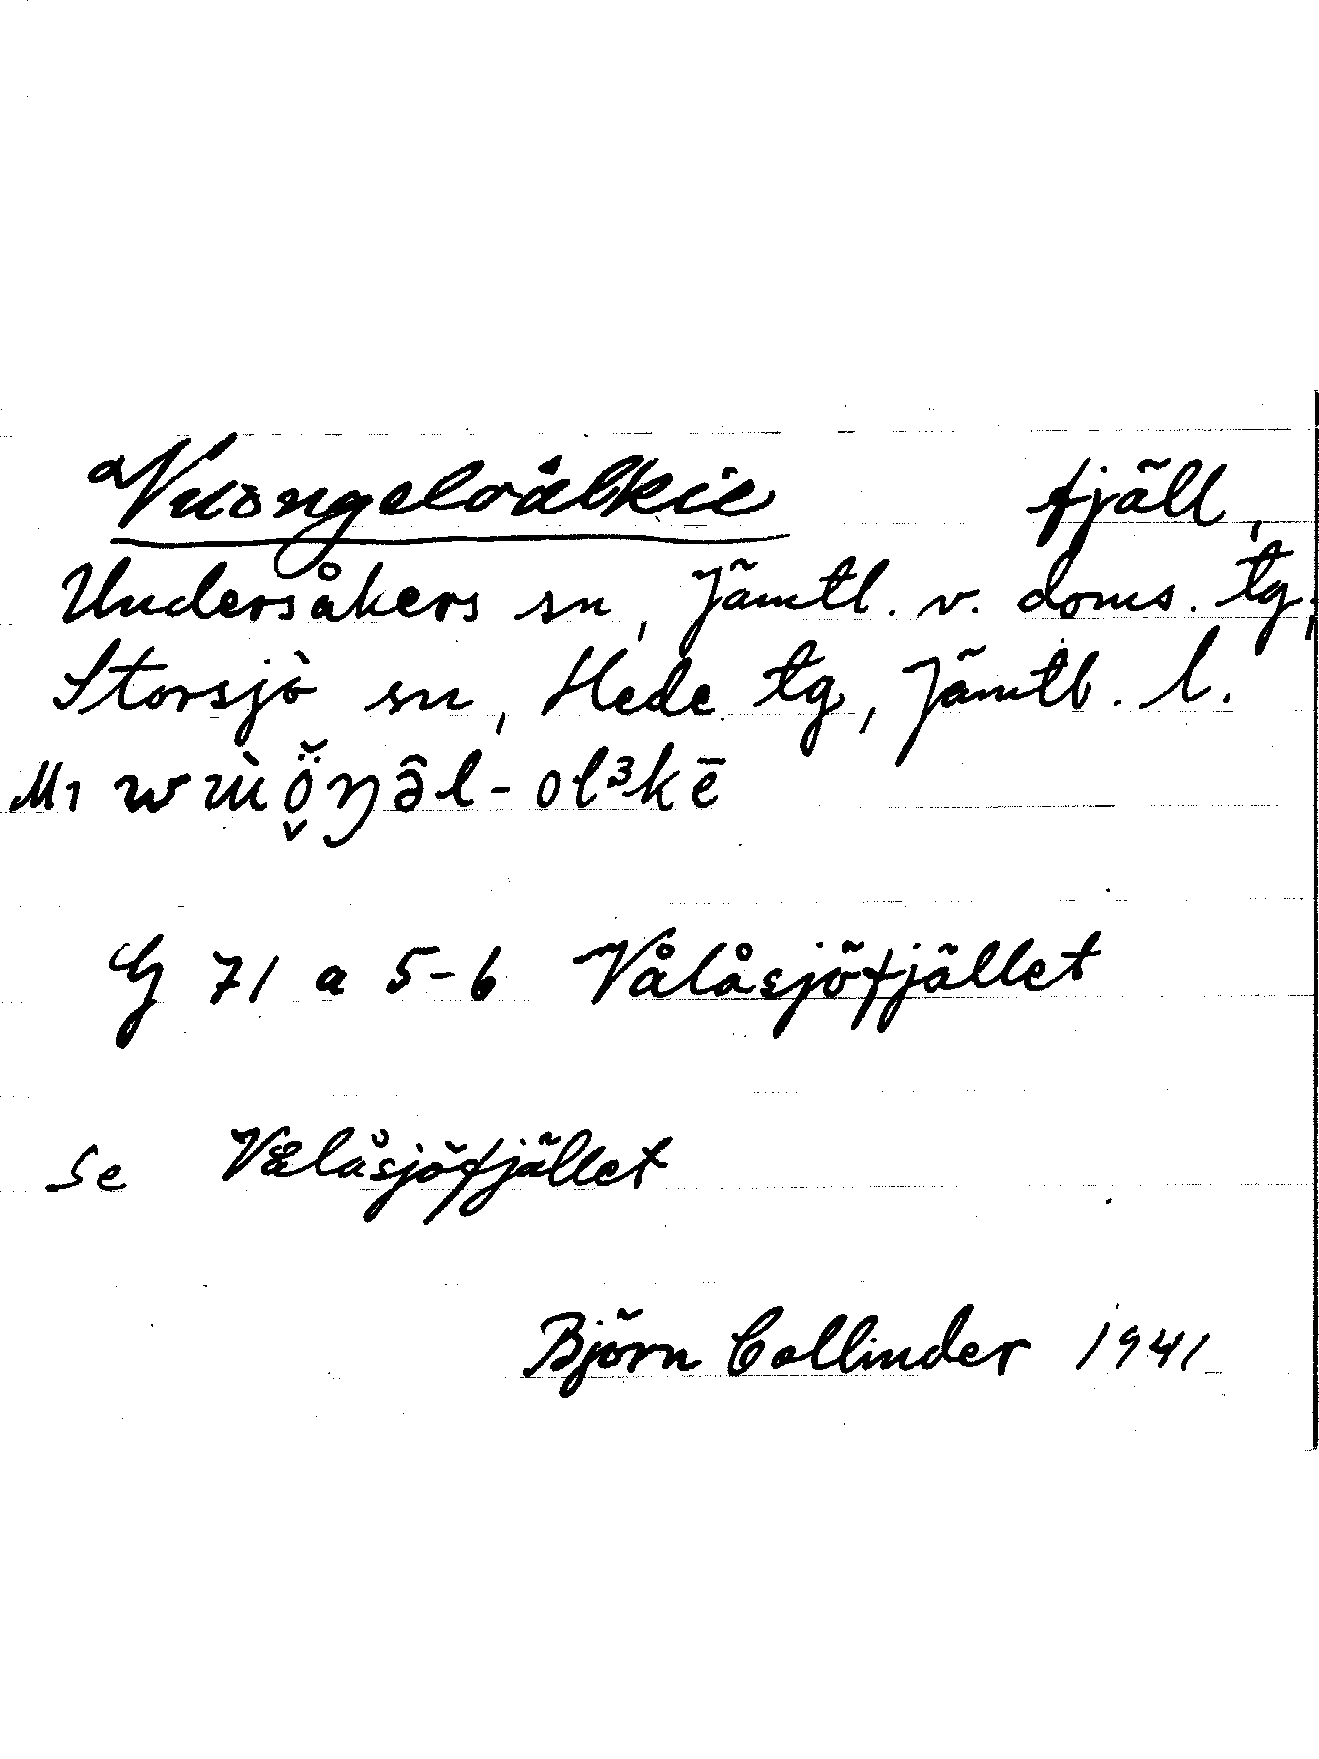 a Vuöngeloålkie fjäll,
Undersåkers sn, Jämtl. v. doms. tg;
Storsjö sn, Hede tg, Jämtl. l.
M1
G 71 a 5-6 Vålåsjöfjället
Se Vålåsjöfjället
Björn Collinder 1941